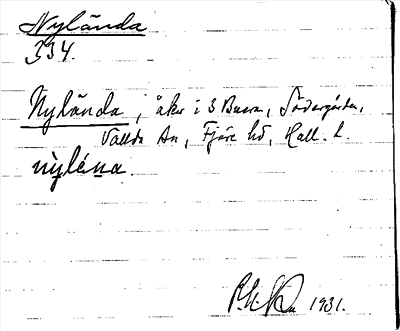 Nylända
334.
Nylända, åker i S Buera, Södergården,
Vallda sn, Fjäre hd, Hall. l.
nyléna.
1931.